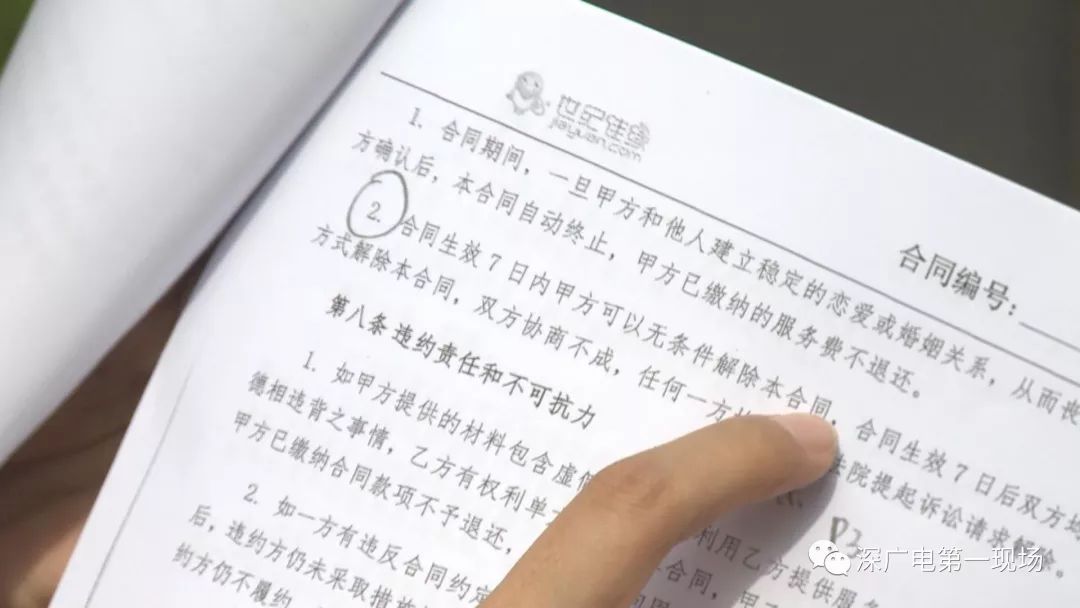 世纪佳缘
jiayuan.com
合同编号：
1. 合同期间，一旦甲方和他人建立稳定的恋爱或婚姻关系，从而丧
方确认后，本合同自动终止，甲方已缴纳的服务费不退还。
2. 合同生效7日内甲方可以无条件解除本合同，合同生效7日后双方均
方式解除本合同，双方协商不成，任何一方 法院提起诉讼请求解除。
第八条 违约责任和不可抗力
1. 如甲方提供的材料包含虚 利用乙方提供服
德相违背之事情，乙方有权利单 合同，甲
甲方已缴纳合同款项不予退还，
2. 如一方有违反合同约定
后，违约方仍未采取措施
约方仍不履约
深广电第一现场